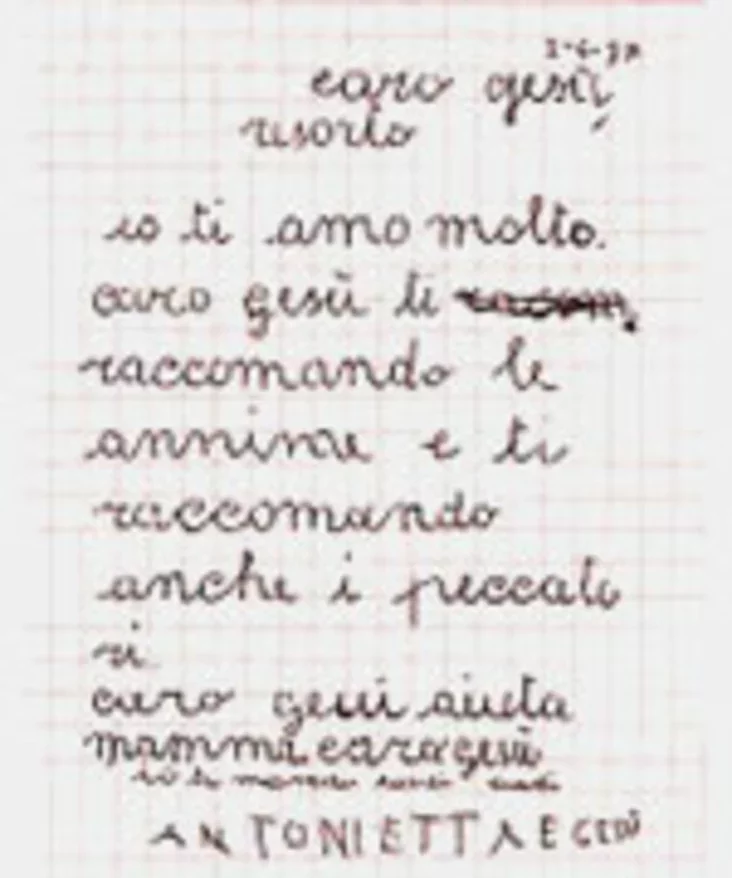 caro gesù
risorto
io ti amo molto.
caro gesù ti
raccomando le
annime e ti
raccomando
anche i peccato
ri
caro gesù aiuta
mamma caro gesù
io ti mando
ANTONIETTA E GESÙ